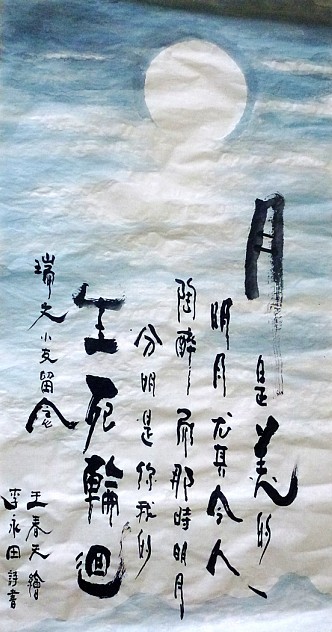 月是美的
明月尤其令人
陶醉 而那時明月
分明是你我的
生死輪迴
瑞文小克留念
王春天繪
李永田詩書